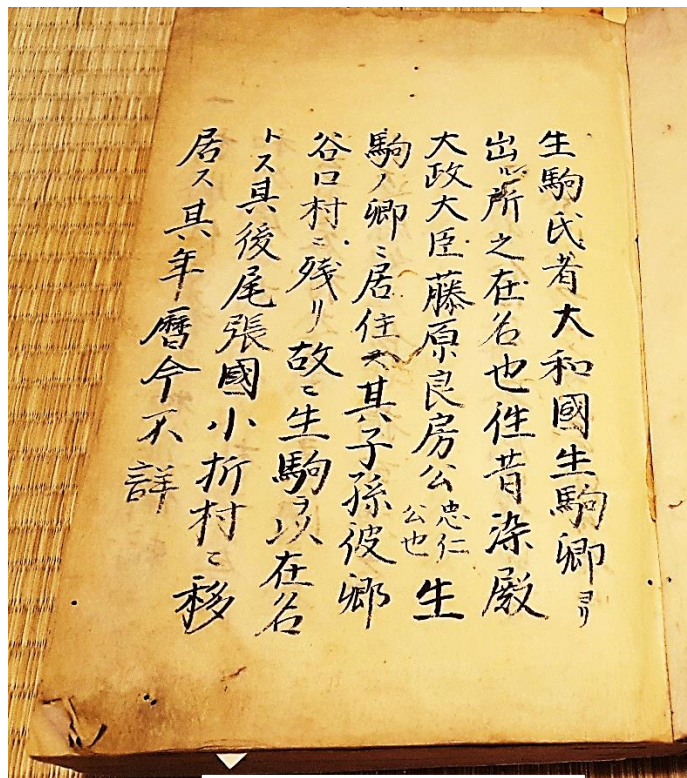 生駒氏者大和國生駒卿ヨリ
出ル所之在名也徃昔染殿
大政大臣藤原良房公忠仁公也生
駒ノ卿ニ居住ス其子孫彼郷
谷口村ニ残リ故ニ生駒ヲ以在名
トス其後尾張國小折村ニ移
居ス其年暦今不詳